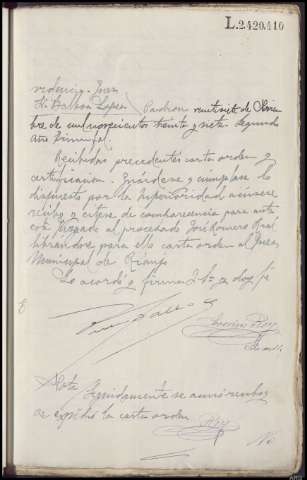 L.2420410
Padron veintisiete de
bre de mil novecientos treinta y siete. Segundo
Año Triunfal
Recibidas precedentes carta orden y
certificación. Guárdese y cúmplase lo
dispuesto por la Superioridad acúsese
recibo y cítese de comparecencia para ante
este Juzgado al procesado José Romero Real
librándose para ello carta orden al Juez
Municipal de Rianjo
Lo acordó y firma S.Sª y doy fé
Nota Seguidamente se acusó recibo
se expidió la carta orden